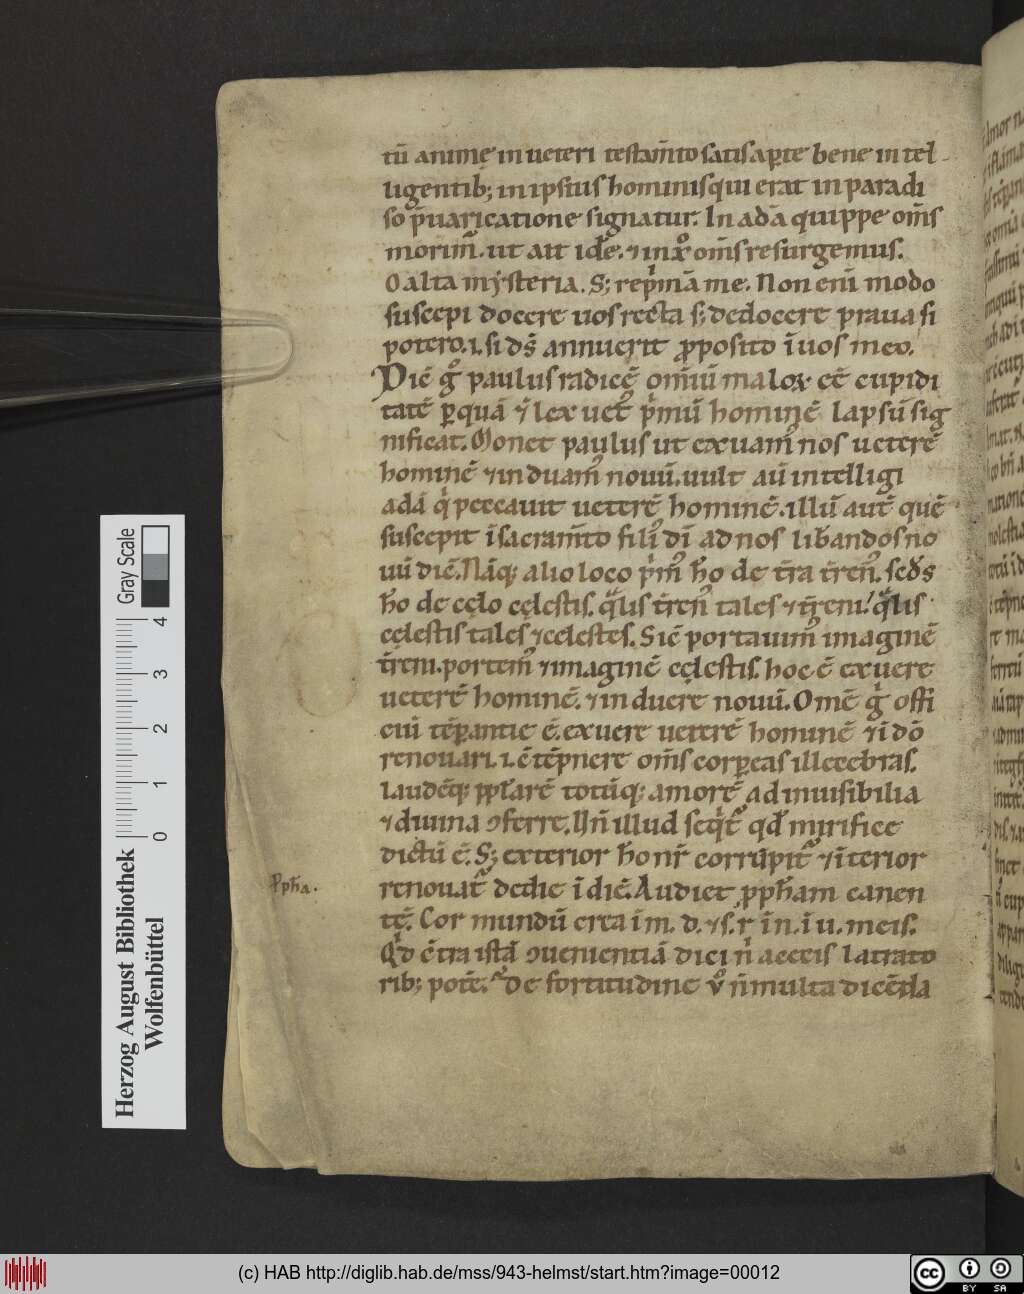 tū animę in ueteri testam̄to satis aꝑte bene intel
ligentib; in ipsius hominis qui erat in paradi
so p̄uaricatione signatur. In adā quippe om̄s
morim̄. ut ait idē. ⁊ in xo om̄s resurgemus.
O alta mẏsteria. S; rep̄mā me. Non eni modo
suscepi docere uos recta s; dedocere praua si
potero. i. si ds̄ annuerit ꝓposito i uos meo.
Dic̄ gͦ paulus radicē omiū malor cē cupidi
tatē ꝑquā ⁊ lex uet p̄mū hominē lapsū sig
nificat. Monet paulus ut exuam nos ueterē
hominē ⁊ induam nouū. uult aū intelligi
adā q peccauit ueterē hominē. illū aut quē
suscepit i sacram̄to filii di ad nos libandos no
uū dic̄. Nāq; alio loco p̄m ho de tr̄a tren. scds
ho de cęlo cęlestis. q̄lis tren tales ⁊ treni. q̄lis
cęlestis tales ⁊ celestes. Sic portauim imaginē
treni. portem ⁊ imaginē cęlestis. hoc ē exuere
ueterē hominē. ⁊ induere nouū. Omē g offi
ciū tēꝑantie ē. exuere ueterē hominē ⁊ i dō
renouari. i. cōtēpnere om̄s corꝑeas illecebras.
laudēq; pplarē totūq; amorē ad inuisibilia
⁊ diuina ↄferre. Un̄ illud seq̄t qd mirifice
dictū ē. S; exterior ho nr corrūpit ⁊ iterior
renouat dedie i diē. Audiet ꝓpham canen
Ppha.
tē. Cor mundū crea i m. d. ⁊ s. r. in. i u. meis.
Qd cōtra istā ↄueuentiā dici n aeceis latrato
rib; potē. De fortitudine vͦ n multa dicēda
Herzog August Bibliothek
Wolfenbüttel
Gray Scale
0 1 2 3 4
(c) HAB http://diglib.hab.de/mss/943-helmst/start.htm?image=00012
cc BY SA